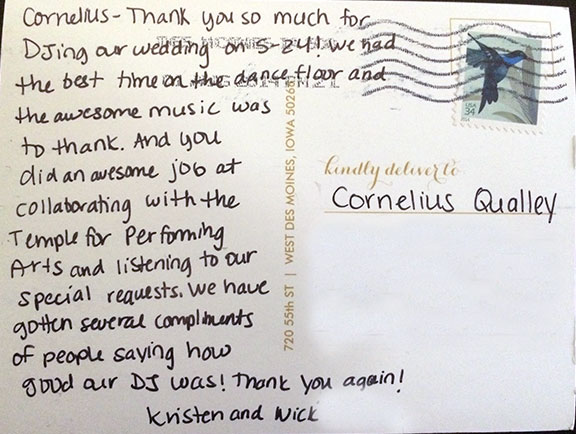 Cornelius - Thank you so much for
DJing our wedding on 5-24! We had
the best time on the dance floor and
the awesome music was
to thank. And you
did an awesome job at
collaborating with the
Temple for Performing
Arts and listening to our
special requests. We have
gotten several compliments
of people saying how
good our DJ was! Thank you again!
Kristen and Nick
720 55th ST | WEST DES MOINES, IOWA 50266
USA
34
kindly deliver to
Cornelius Qualley